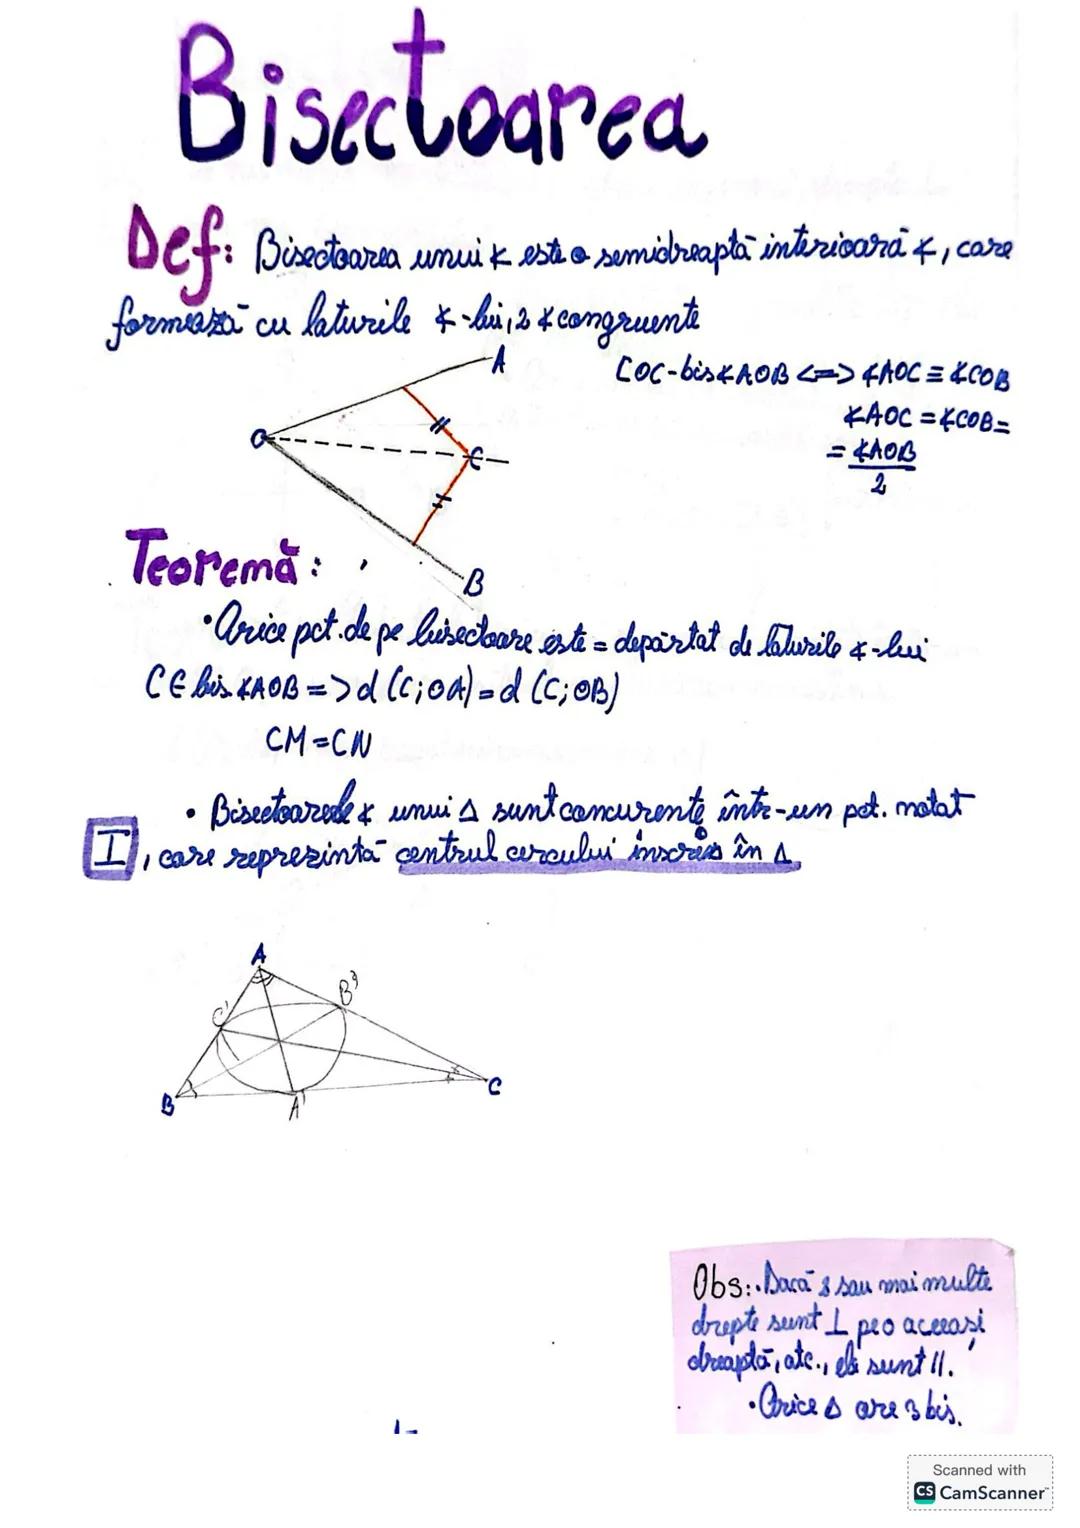 Bisectoarea
Def: Bisectoarea unui ∢ este o semidreaptă interioară ∢, care
formează cu laturile ∢-lui, 2 ∢ congruente
A
[OC-bis ∢AOB <=> ∢AOC ≡ ∢COB
∢AOC = ∢COB =
= ∢AOB
2
O
C
B
Teoremă:
• Orice pct. de pe bisectoare este = depărtat de laturile ∢-lui
C ∈ bis ∢AOB => d (C; OA) = d (C; OB)
CM = CN
• Bisectoarele ∢ unui Δ sunt concurente într-un pct. notat
I, care reprezintă centrul cercului înscris în Δ
A
B'
C'
B
A'
C
Obs: • Dacă 2 sau mai multe
drepte sunt ⊥ pe o aceeași
dreaptă, atc., ele sunt ||.
• Orice Δ are 3 bis.
Scanned with
CS CamScanner